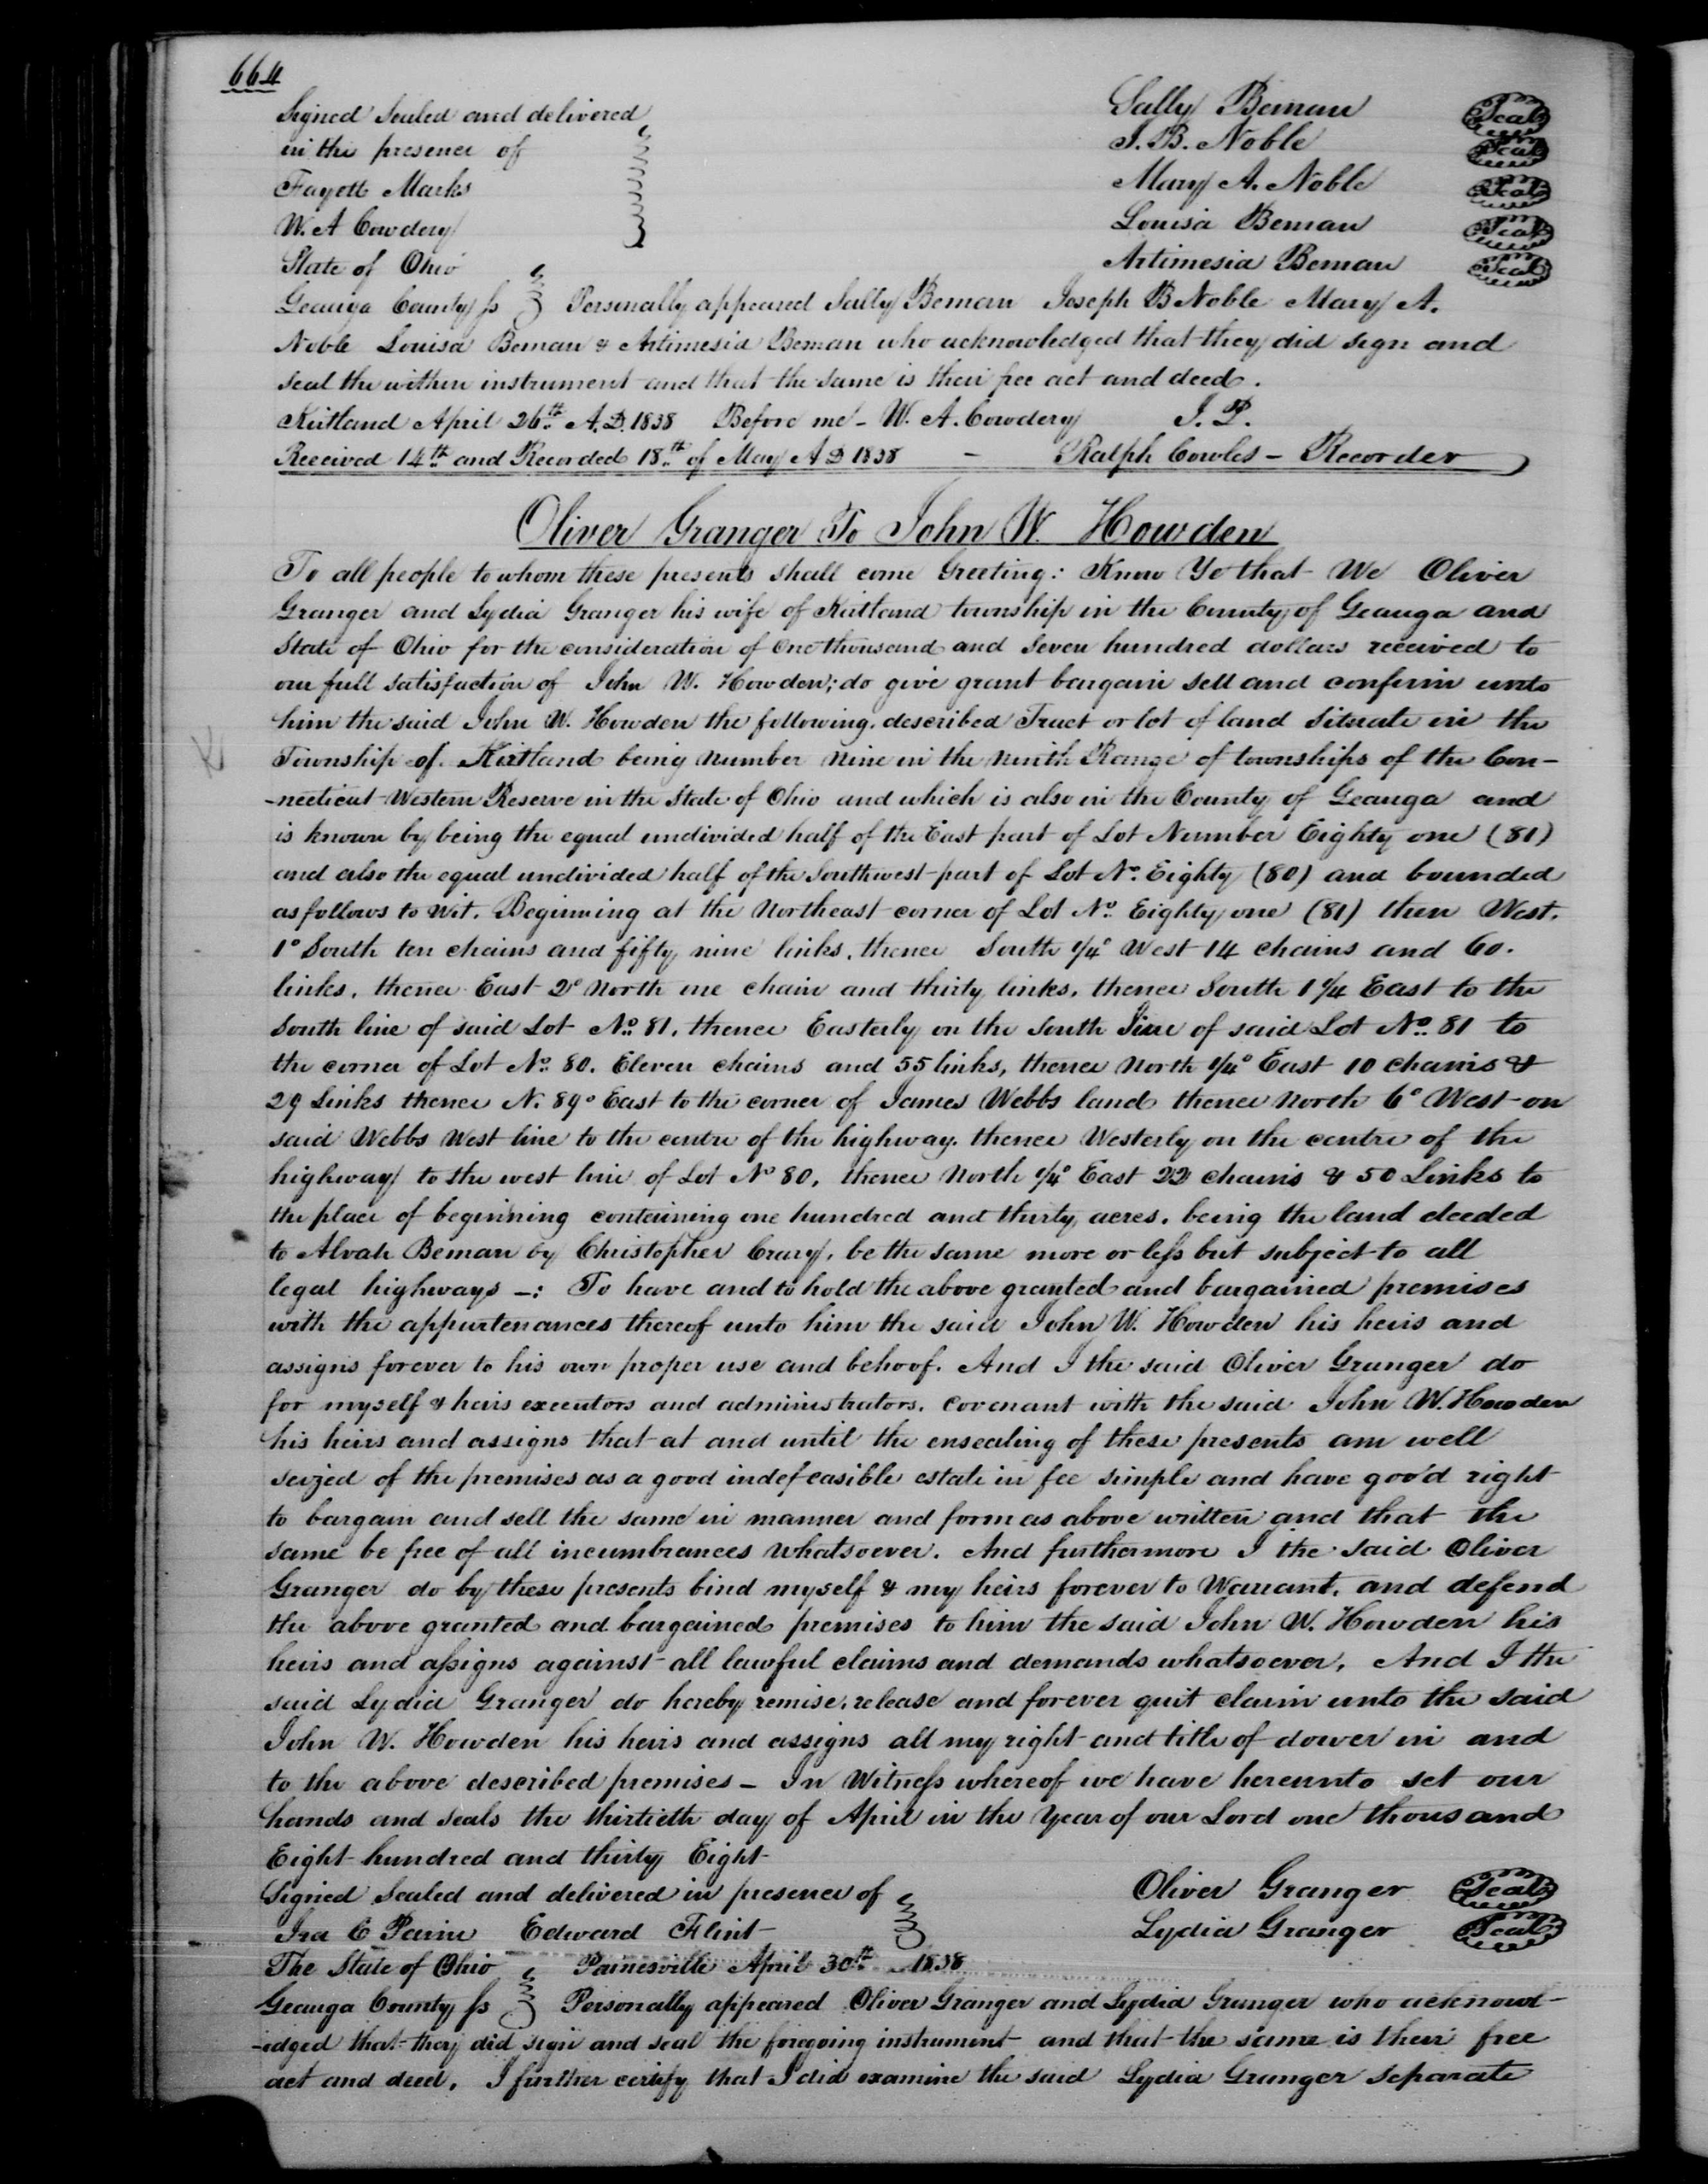 664
Signed Sealed and delivered
in the presence of
Fayette Marks
W. A Cowdery
Sally Beman Seal
J. B. Noble Seal
Mary A. Noble Seal
Louisa Beman Seal
Artimesia Beman Seal
State of Ohio
Geauga County ss Personally appeared Sally Beman Joseph B Noble Mary A.
Noble Louisa Beman & Artimesia Beman who acknowledged that they did sign and
seal the within instrument and that the same is their free act and deed.
Kirtland April 26th A.D. 1838 Before me - W. A. Cowdery J. P.
Received 14th and Recorded 18th of May A D 1838 - Ralph Cowles - Recorder
Oliver Granger To John W. Howden
To all people to whom these presents shall come Greeting: Know Ye that We Oliver
Granger and Lydia Granger his wife of Kirtland township in the County of Geauga and
State of Ohio for the consideration of One thousand and Seven hundred dollars received to
our full satisfaction of John W. Howden; do give grant bargain sell and confirm unto
him the said John W. Howden the following described Tract or lot of land Situate in the
Township of Kirtland being number nine in the ninth Range of townships of the Con-
-necticut Western Reserve in the State of Ohio and which is also in the County of Geauga and
is known by being the equal undivided half of the East part of Lot Number Eighty one (81)
and also the equal undivided half of the Southwest part of Lot No. Eighty (80) and bounded
as follows to Wit. Beginning at the Northeast corner of Lot No. Eighty one (81) then West.
1° South ten chains and fifty nine links, thence South 1/4° West 14 chains and 60.
links, thence East 2° North one chain and thirty links, thence South 1 1/4 East to the
South line of said Lot No. 81, thence Easterly on the South line of said Lot No. 81 to
the corner of Lot No. 80. Eleven chains and 55 links, thence North 1/4° East 10 chains &
29 Links thence N. 89° East to the corner of James Webbs land thence North 6° West on
said Webbs West line to the centre of the highway. thence Westerly on the centre of the
highway to the west line of Lot No 80, thence North 1/4° East 22 chains & 50 Links to
the place of beginning containing one hundred and thirty acres, being the land deeded
to Alvah Beman by Christopher Crary, be the same more or less but subject to all
legal highways -: To have and to hold the above granted and bargained premises
with the appurtenances thereof unto him the said John W. Howden his heirs and
assigns forever to his own proper use and behoof. And I the said Oliver Granger do
for myself & heirs executors and administrators, covenant with the said John W. Howden
his heirs and assigns that at and until the ensealing of these presents am well
seized of the premises as a good indefeasible estate in fee simple and have good right
to bargain and sell the same in manner and form as above written and that the
same be free of all incumbrances whatsoever. And furthermore I the said Oliver
Granger do by these presents bind myself & my heirs forever to Warrant, and defend
the above granted and bargained premises to him the said John W. Howden his
heirs and assigns against all lawful claims and demands whatsoever, And I the
said Lydia Granger do hereby remise, release and forever quit claim unto the said
John W. Howden his heirs and assigns all my right and title of dower in and
to the above described premises - In Witness whereof we have hereunto set our
hands and seals the thirtieth day of April in the Year of our Lord one thousand
Eight hundred and thirty Eight
Signed Sealed and delivered in presence of
Ira C Paine Edward Flint
Oliver Granger Seal
Lydia Granger Seal
The State of Ohio Painesville April 30th 1838
Geauga County ss Personally appeared Oliver Granger and Lydia Granger who acknowl-
-edged that they did sign and seal the foregoing instrument and that the same is their free
act and deed, I further certify that I did examine the said Lydia Granger separate